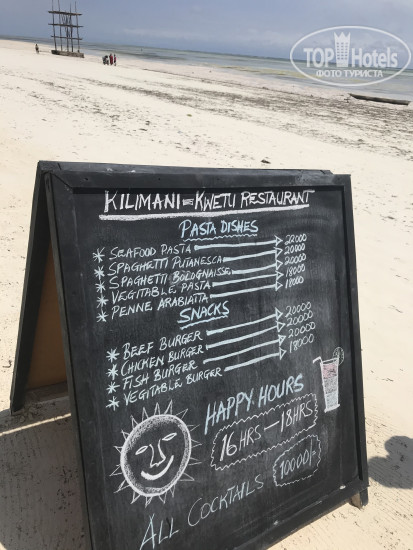 TOPHotels
ФОТО ТУРИСТА
KILIMANI = KWETU RESTAURANT
PASTA DISHES
* SEAFOOD PASTA 22000
* SPAGHETTI PUTANESCA 20000
* SPAGHETTI BOLOGNAISSE 20000
* VEGITABLE PASTA 18000
* PENNE ARABIATTA 18000
SNACKS
* BEEF BURGER 20000
* CHICKEN BURGER 20000
* FISH BURGER 20000
* VEGITABLE BURGER 18000
HAPPY HOURS
16HRS - 18HRS
ALL COCKTAILS 10000/=